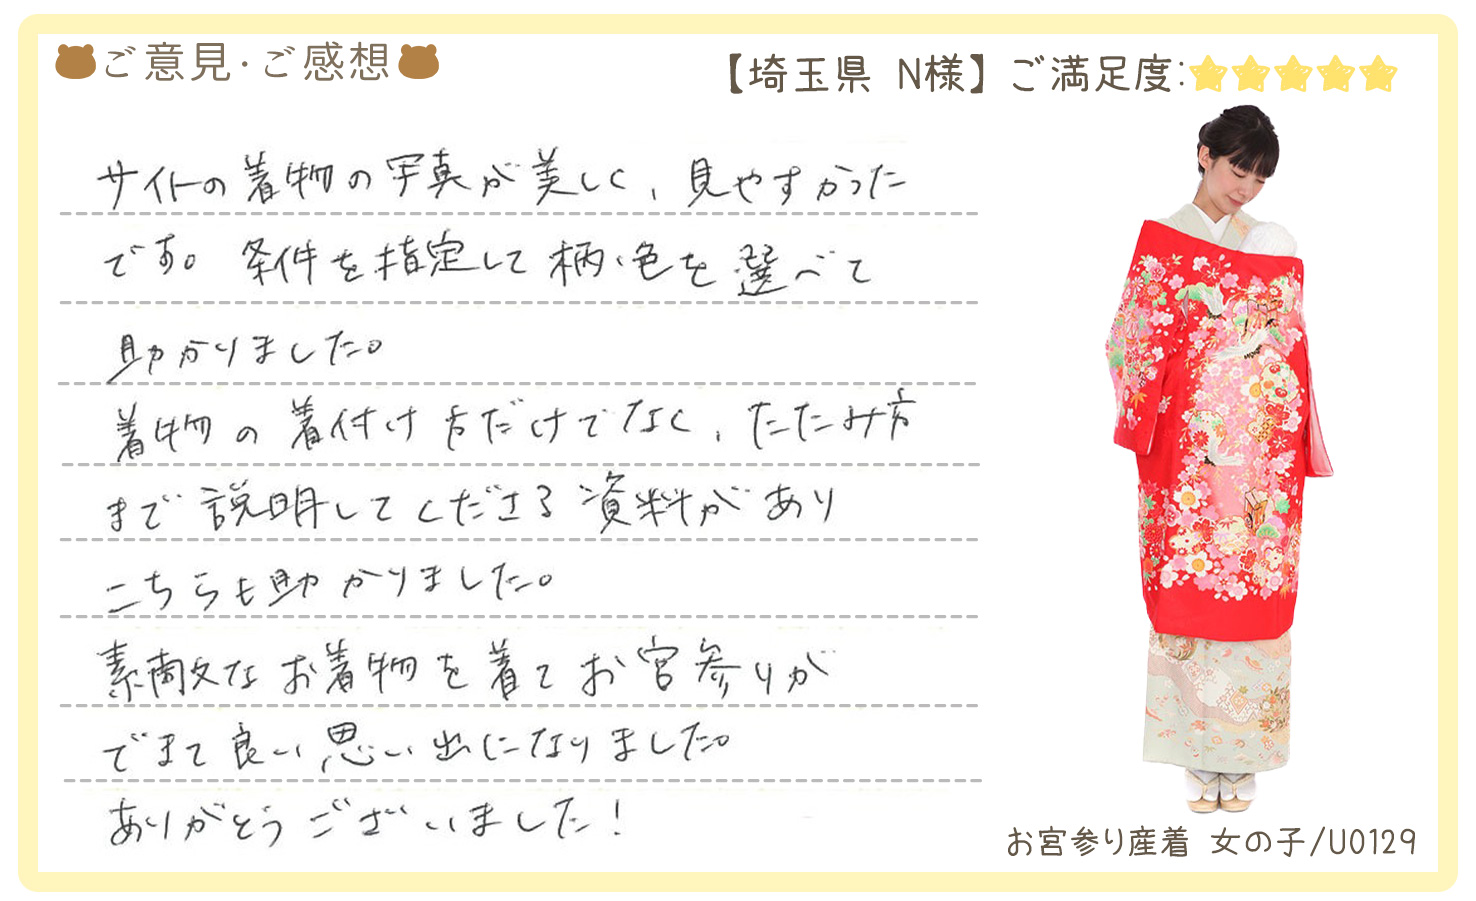 ご意見・ご感想
【埼玉県 N様】ご満足度:
サイトの着物の写真が美しく、見やすかった
です。条件を指定して柄・色を選べて
助かりました。
着物の着付け方だけでなく、たたみ方
まで説明してくださる資料があり
こちらも助かりました。
素敵なお着物を着てお宮参りが
できて良い思い出になりました。
ありがとうございました!
お宮参り産着 女の子/U0129